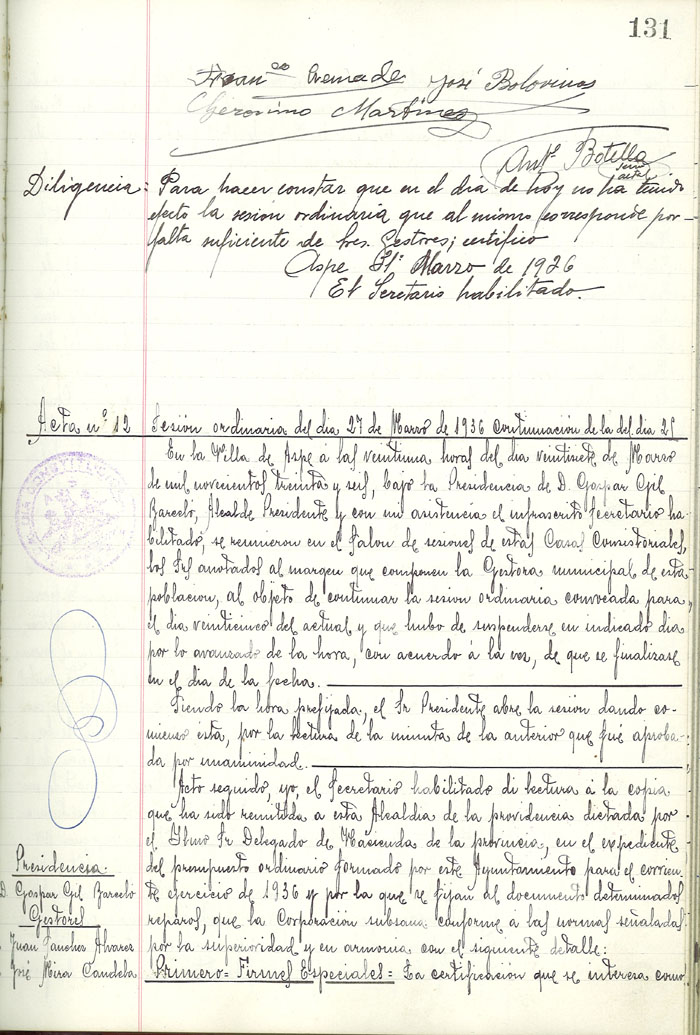 131
Franco Cremade José Bolovinos
Geronimo Martinez
Antº Botella
Diligencia = Para hacer constar que en el dia de hoy no ha tenido
efecto la sesión ordinaria que al mismo corresponde por
falta suficiente de Sres. Gestores; certifico
Aspe 31 Marzo de 1936
El Secretario habilitado.
Acta nº 12 Sesión ordinaria del dia 27 de Marzo de 1936 continuacion de la del dia 25
En la Villa de Aspe á las veintiuna horas del dia veintisiete de Marzo
de mil novecientos treinta y seis, bajo la Presidencia de D. Gaspar Gil
Barceló, Alcalde Presidente y con mi asistencia el infrascrito Secretario ha-
bilitado, se reunieron en el Salon de sesiones de estas Casas Consistoriales,
los Srs anotados al margen que componen la Gestora municipal de esta
poblacion, al objeto de continuar la sesion ordinaria convocada para
el dia veinticinco del actual y que hubo de suspenderse en indicado dia
por lo avanzado de la hora, con acuerdo á la vez, de que se finalizase
en el dia de la fecha.
Siendo la hora prefijada, el Sr Presidente abre la sesion dando co-
mienzo ésta, por la lectura de la minuta de la anterior que fué aproba-
da por unanimidad.
Acto seguido, yo, el Secretario habilitado di lectura á la copia
que ha sido remitida a esta Alcaldia de la providencia dictada por
el Ylmo Sr Delegado de Hacienda de la provincia, en el expediente
del presupuesto ordinario formado por este Ayuntamiento para el corrien-
te ejercicio de 1936 y por la que se fijan al documento determinados
reparos, que la Corporación subsana conforme a las normas señaladas
por la superioridad y en armonia con el siguiente detalle:
Primero = Firmes Especiales = La certificación que se interesa como
Presidencia.
D. Gaspar Gil Barceló
Gestores
Juan Sanchez Alvarez
José Mira Candela